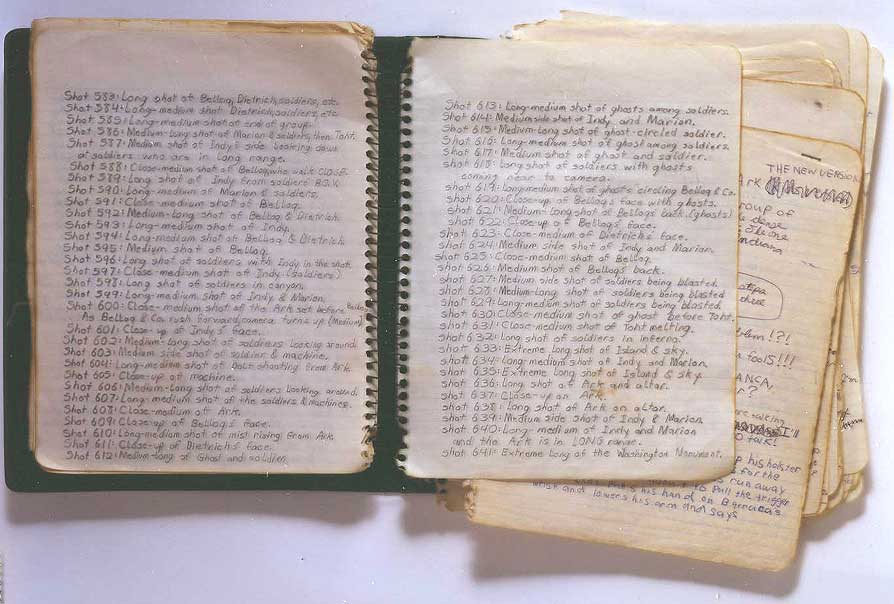 Shot 583: Long shot of Belloq, Dietrich, soldiers, etc.
Shot 584: Long-medium shot Dietrich, soldiers, etc.
Shot 585: Long-medium shot of end of group.
Shot 586: Medium-long shot of Marion & soldiers, then Toht.
Shot 587: Medium shot of Indy's side looking down
at soldiers who are in long range.
Shot 588: Close-medium shot of Belloq, who walk CLOSE.
Shot 589: Long shot of Indy from soldiers' P.O.V.
Shot 590: Long-medium of Marion & soldiers.
Shot 591: Close-medium shot of Belloq.
Shot 592: Medium-Long shot of Belloq & Dietrich.
Shot 593: Long-medium shot of Indy.
Shot 594: Long-medium shot of Belloq & Dietrich.
Shot 595: Medium shot of Belloq.
Shot 596: Long shot of soldiers with Indy in the shot.
Shot 597: Close-medium shot of Indy. (soldiers)
Shot 598: Long shot of soldiers in canyon.
Shot 599: Long-medium shot of Indy & Marion.
Shot 600: Close-medium shot of the Ark set before
As Belloq & Co. rush forward, camera turns up (Medium)
Shot 601: Close-up of Indy's face.
Shot 602: Medium-long shot of soldiers looking around.
Shot 603: Medium side shot of soldier & machine.
Shot 604: Long-medium shot of bolt shooting from Ark.
Shot 605: Close-up of machine.
Shot 606: Medium-long shot of soldiers looking around.
Shot 607: Long-medium shot of the soldiers & machines.
Shot 608: Close-medium of Ark.
Shot 609: Close-up of Belloq's face.
Shot 610: Long-medium shot of mist rising from Ark.
Shot 611: Close-up of Dietrich's face.
Shot 612: Medium-long of Ghost and soldier.
Shot 613: Long-medium shot of ghosts among soldiers.
Shot 614: Medium side shot of Indy and Marion.
Shot 615: Medium-long shot of ghost-circled soldier.
Shot 616: Long-medium shot of ghost among soldiers.
Shot 617: Medium shot of ghost and soldier.
Shot 618: Long shot of soldiers with ghosts
coming near to camera.
Shot 619: Long-medium shot of ghosts circling Belloq & Co.
Shot 620: Close-up of Belloq's face with ghosts.
Shot 621: Medium-Long shot of Belloq's back. (ghosts)
Shot 622: Close-up of Belloq's face.
Shot 623: Close-medium of Dietrich's face.
Shot 624: Medium side shot of Indy and Marion.
Shot 625: Close-medium shot of Belloq.
Shot 626: Medium shot of Belloq's back.
Shot 627: Medium side shot of soldiers being blasted.
Shot 628: Medium-Long shot of soldiers being blasted
Shot 629: Long-medium shot of soldiers being blasted.
Shot 630: Close-medium shot of ghost before Toht.
Shot 631: Close-medium shot of Toht melting.
Shot 632: Long shot of soldiers in inferno.
Shot 633: Extreme long shot of Island & sky.
Shot 634: Long-medium shot of Indy and Marion.
Shot 635: Extreme long shot of Island & sky.
Shot 636: Long shot of Ark and altar.
Shot 637: Close-up on Ark.
Shot 638: Long shot of Ark on altar.
Shot 639: Medium side shot of Indy & Marion.
Shot 640: Long-medium of Indy and Marion
and the Ark is in LONG range.
Shot 641: Extreme Long of the Washington Monument.
THE NEW VERSION
Ark
roup of
Indiana
there
blem!?!
tools!!!
talking
O talk!
his holster
for the
run away
to pull the trigger
his hand on
and lowers his arm and says